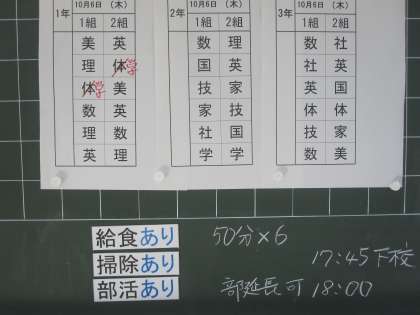 1年 10月6日 (木)
1組 2組
美 英
理 体 学
体 学 美
数 英
理 数
英 理
2年 10月6日 (木)
1組 2組
数 理
国 英
技 家
家 技
社 国
学 学
3年 10月6日 (木)
1組 2組
数 社
社 英
英 国
体 体
技 家
数 美
給食あり 50分×6
掃除あり 17:45下校
部活あり 部延長可 18:00